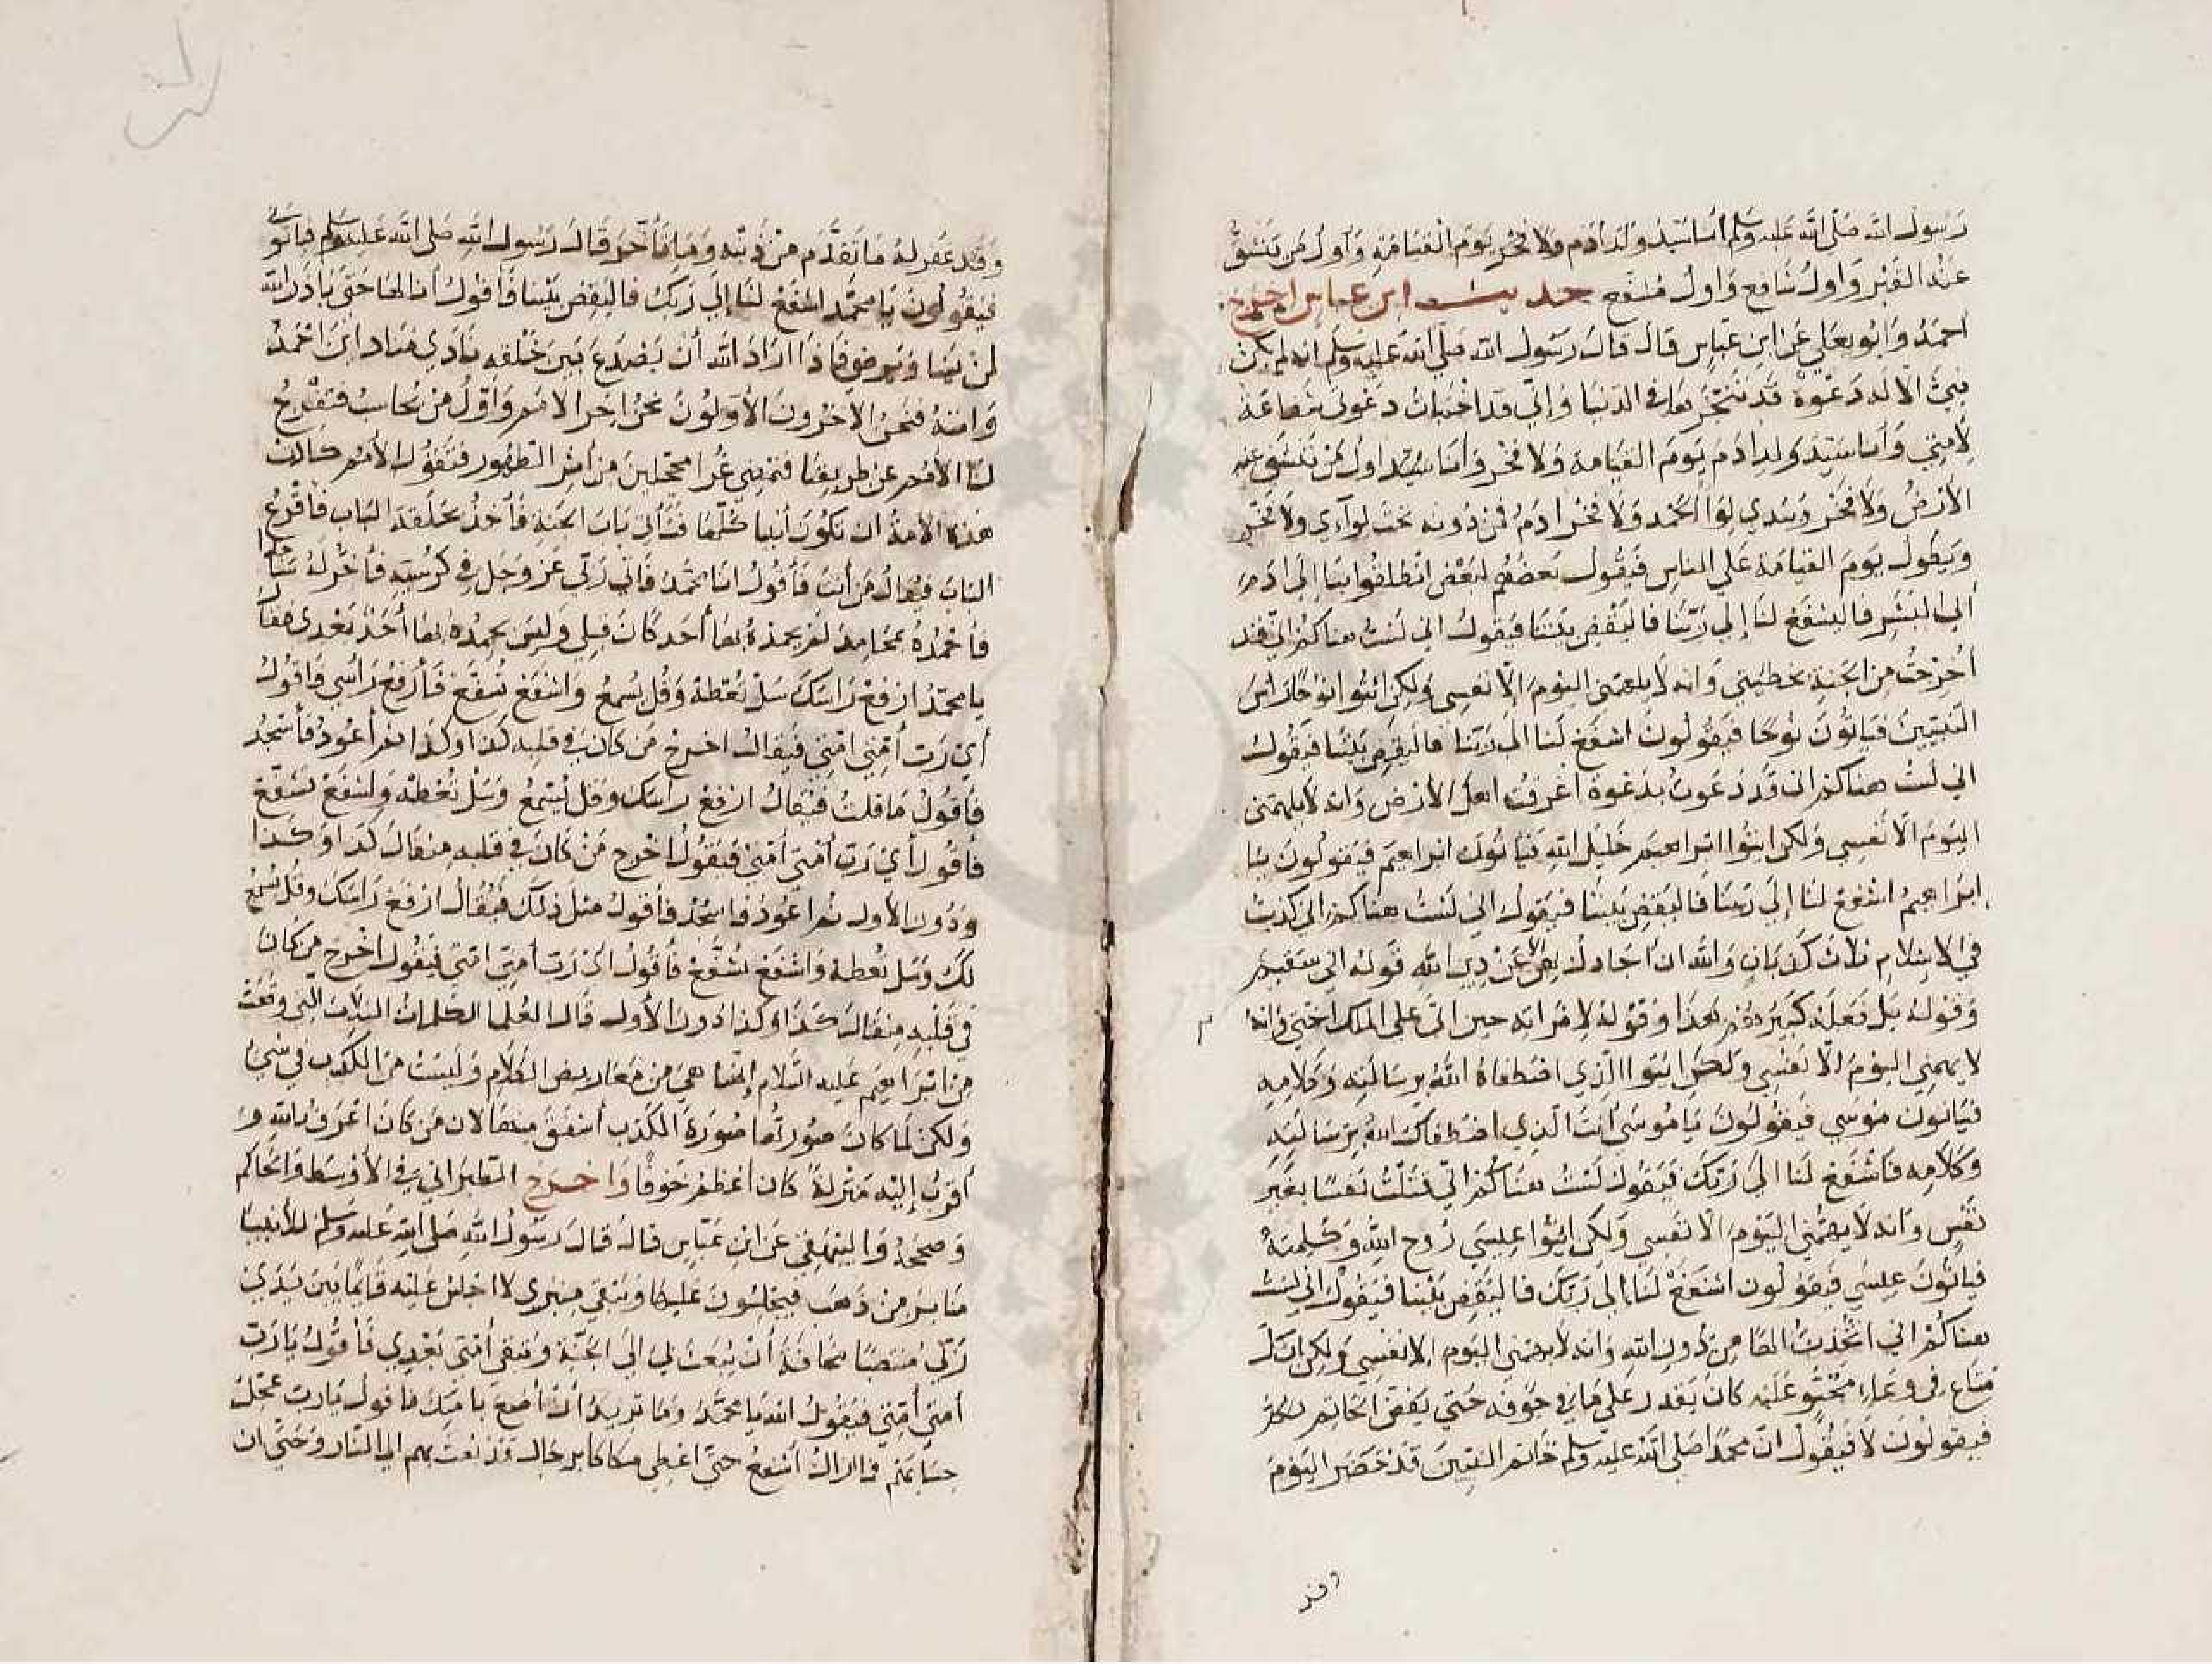 رَسُول الله صَلى الله عَليه وسَلم أنا سَيّدُ وَلد آدَم وَلا فخر يَومَ القيَامَةِ وَأول مَن يَنشق
عنْد القَبْر وَاولُ شَافِع وَاولُ مُشفّع حديث ابن عباس اخرج
احمَدُ وَابُو يعَلي عَن ابن عبّاسٍ قال قالَ رَسُول الله صَلى الله عَليه وسَلم انه لم يكن
نبيّ الا له دَعْوة قدْ تنَجّزهَا في الدنيَا وَاني قد اختَبات دَعْوَتى شفاعَة
لأمتِي وَأنا سَيّد وَلد ادَم يَومَ القيَامة وَلا فخر وَأنا سيّد اول مَن تنشق عنه
الأرْضُ وَلا فَخر وَبيَدي لِوَا الحَمد وَلا فخْر ادَمُ فمن دُونه تحتَ لوَآءِي وَلا فخر
وَيطُول يومَ القيَامَة عَلى الناسِ فيَقُول بَعضُهُم لبَعْض انطلقُوا بنَا إلى ادَم
أبي البَشَر فاليشفع لنَا إلى رَبّنَا فاليَقْضِ بَيْننَا فيَقُولُ اني لسْتُ هناكم اني قد
اُخْرجتُ مِن الجَنةِ بخطيئَتي وَانه لا يهمني اليَومَ إلا نفسِي وَلكن ائتُوا نوحًا رَاس
النَبيّينَ فيَاتُونَ نُوحًا فَيَقُولُونَ اشفَع لنَا الى رَبّنَا فاليَقضِ بَيْننَا فيَقُولُ
اني لسْتُ هناكم اني قَد دَعَوتُ بدَعْوَة أغْرقت اهلَ الأرْض وَانه لا يهمني
اليَومَ الا نفسِي وَلكن ائتُوا ابراهيمَ خَليْل اللهِ فيَأتُونَ ابراهيمَ فيَقُولُونَ يَا
ابراهِيمُ اشفَعْ لنَا إلى رَبّنَا فاليَقضِ بَيْننَا فيَقُولُ اني لسْتُ هناكم اني كذبتُ
في الاسْلام ثلاث كذبَاتٍ وَالله ان جَادل بهن إلا عَنْ دِين اللهِ قَوله اني سَقيم
وَقَوْله بَل فَعَله كبيرُهُم هَذا وَقَوْله لامرَاته حين اتى عَلى الملك اختي وَانه
لا يهمني اليَومَ الا نفسِي وَلكن ائتوا الَّذِي اصْطفَاهُ اللهُ برسَالتِه وَكلامِه
فيَاتُونَ مُوسَي فيَقُولُونَ يَا مُوسَى انتَ الذِي اصْطفاكَ اللهُ برسَالتِهِ
وَكلامِه فَاشفَع لنَا الىَ رَبّكَ فيَقُولُ لسْتُ هنَاكُم اني قتَلْتُ نَفْسًا بغَير
نَفْسٍ وَانه لا يهمُّني اليَومَ الا نفسِي وَلكن ائتُوا عِيسَي رُوح اللهِ وَكلِمتهُ
فيَاتُونَ عِيسَي فيَقُولُون اشفَعْ لنَا الى رَبّكَ فاليَقضِ بَيْننَا فيَقُولُ اني لسْتُ
هناكُمْ اني اتّخذتُ الهًا مِنْ دُون الله وَانه لا يهمني اليَوم الا نفسِي وَلكن ان كلّ
مَتاع في وِعَاء مختُوم عَليْه كانَ يقدر عَلى مَا في جَوفه حَتى يَفضّ الخاتم
فيَقُولُونَ لا فَيَقُولُ انّ محمَّدًا صَلى الله عَليه وسَلم خَاتم النبيّينَ قَدْ حَضَر اليَوْمَ
وقد
وَقَد غفر لهُ مَا تَقدَّم منْ ذَنبه وَمَا تَأخّر قَالَ رَسُول اللهِ صَلى الله عَليه وسَلم فيَاتُوني
فيَقُولُون يَا محمَّد اشفَعْ لنَا إلى رَبّكَ فاليَقضِ بَيْننَا فأقولُ انا لها حَتّى يأذَن الله
لمن يشَا وَيرضى فاذا ارَادَ الله أنْ يَصْدَعَ بَينَ خَلقه نَادَي مُنَاد اينَ احْمَدُ
وَامتهُ فنَحنُ الآخرُونَ الأوّلُونَ نحنُ اخر الأمَم وَأوّلُ منْ يُحَاسَبُ فتفْرجُ
لنَا الأمَم عن طريقنَا فنَمضي غُرًّا محجّلينَ مِن أثر الطهُور فتَقُولُ الأمَم كادَت
هَذه الأمَةُ ان تكُونَ أنبيَا كُلّهَا فنَأتي بَابَ الجَنة فَآخذُ بحَلقة البَاب فأقرعُ
البَابَ فيُقَالُ مَن أنتَ فَأقُولُ انَا محمّدٌ فَآتي رَبّي عَز وَجَل في كرْسيّه فَأخرُّ لهُ سَاجدًا
فَأحْمَدُهُ بمَحَامِدَ لم يحمدْهُ بهَا أحَد كَانَ قبلِي وَليْسَ يحمدُهُ بهَا أحَدٌ بَعْدي فيقَال
يَا محمّدُ ارْفعْ رَاسَكَ سَلْ تُعْطهْ وَقُل يُسمَعْ وَاشفَعْ تُشفّعْ فَأرْفَعُ رَأسِي فَأقُولُ
أيْ رَبّ أمتِي امتِي فيُقَالُ اخرجْ مَن كانَ في قلبه كذَا وَكذَا ثم أعُودُ فأسْجُدُ
فَأقُولُ مَا قلتُ فيُقَالُ ارْفعْ رَاسَكَ وَقل يُسْمَعْ وَسَلْ تُعْطهْ وَاشفَعْ تشفّعْ
فأقُولُ أيْ رَبّ أمّتي أمّتي فيَقُولُ أخْرج مَنْ كانَ في قلبه مِثقَالَ كذَا وَكذَا
وَدُونَ الأول ثم اعُودُ فاسْجُدُ فَأقولُ مثلَ ذلكَ فيُقَالُ ارْفعْ رَاسَكَ وَقُلْ يُسْمَعْ
لكَ وَسَل تُعْطهْ وَاشفَعْ تُشفّعْ فَأقُولُ اي رَبّ أمّتي امّتي فيَقُولُ اخْرجْ مَن كانَ
في قَلْبه مِثقَالَ كذَا وَكذَا دُونَ الأول قَالَ العُلمَا الكَلمَاتُ الثلاث التي وَقَعَتْ
مِن ابْرَاهِيم عَليه السَّلام إنَّمَا هيَ مِن مَعَاريض الكَلام وَليْسَتْ مِن الكَذِب في شَيْ
وَلكن لمّا كانَ صُورَتُهَا صُورَة الكَذب أشفَقَ منهَا لان مَن كانَ أعْرَفَ بالله و
أقرَبُ إليْه مَنزلةً كان أعْظم خَوفًا وَاخرج الطبَرَاني في الأوْسَط وَالحَاكم
وَصحّحهُ وَالبَيهَقي عَن ابْن عَبَّاسٍ قالَ قالَ رَسُولُ اللهِ صَلى الله عَليه وسَلم للأنبيَا
منَابرُ مِن ذَهَب فيَجْلسُونَ عَليهَا وَيبْقى مِنبَري لا اجلسُ عَليه قَائِمًا بَيْنَ يَدَيْ
رَبّي مُنتَصبًا مَخافَة أَنْ يبعَثَ بي إلى الجَنّة وَتبقى أمّتي بَعْدِي فَأقُولُ يَارَبّ
أمتي أمتِي فيَقُولُ الله يَا محمّدُ وَمَا تريدُ أنْ أصْنَعَ بامتِكَ فاقولُ يَارَبّ عَجّلْ
حِسَابَهُم فما ازالُ أشفَعُ حَتّى اعْطى صكاكا برجَال قَدْ بُعثَ بهم الى النّار وَحَتّى ان